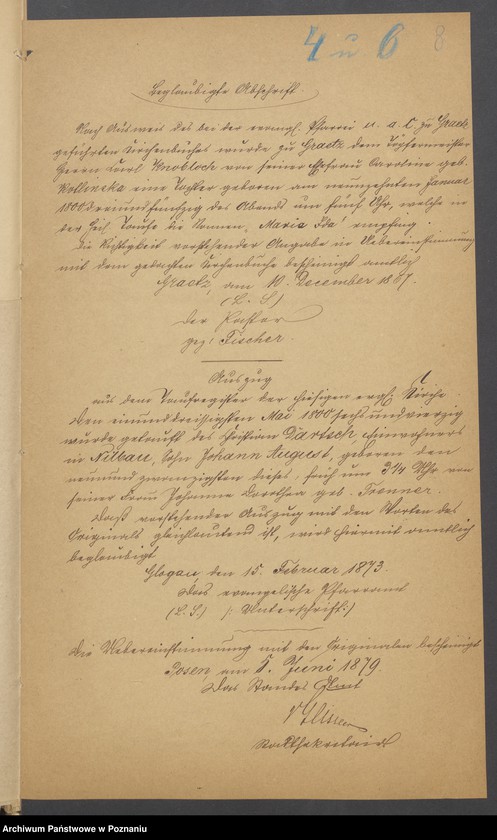 4 u 6 8
Beglaubigte Abschrift.
Nach Ausweis des bei der evangl. Pfarrei u. a. C zu Graetz
geführten Kirchenbuches wurde zu Graetz dem Töpfermeister
Herrn Carl Knobloch von seiner Ehefrau Caroline geb.
eine Tochter geboren am neunzehnten Januar
1800 dreiundfünfzig des Abends um fünf Uhr, welche in
der heil. Taufe die Namen, Maria Ida' empfing
Die Richtigkeit vorstehender Angabe in Uebereinstimmung
mit dem gedachten Kirchenbuche bescheinigt amtlich
Graetz, am 10. December 18 7.
(L. S)
Der Pastor
gez: Fischer.
Auszug
aus dem Taufregister der hiesigen evgl. Kirche
Den einunddreissigsten Mai 1800 sechsundvierzig
wurde getauft des Christian Dartsch Einwohners
in Nilbau, Sohn Johann August, geboren den
neunundzwanzigsten dieses, früh um 3 1/4 Uhr von
seiner Frau Johanne Dorothea geb. Trenner.
Daß vorstehender Auszug mit den Worten des
Originals gleichlautend ist, wird hiermit amtlich
beglaubigt
Glogau den 15. Februar 1873.
Das evangelische Pfarramt
(L. S.) /: Unterschrift:/
Die Uebereinstimmung mit den Originalen bescheinigt
Posen, am Juni 1879
Das Standes Amt
Stadtsekretair
Archiwum Państwowe w Poznaniu